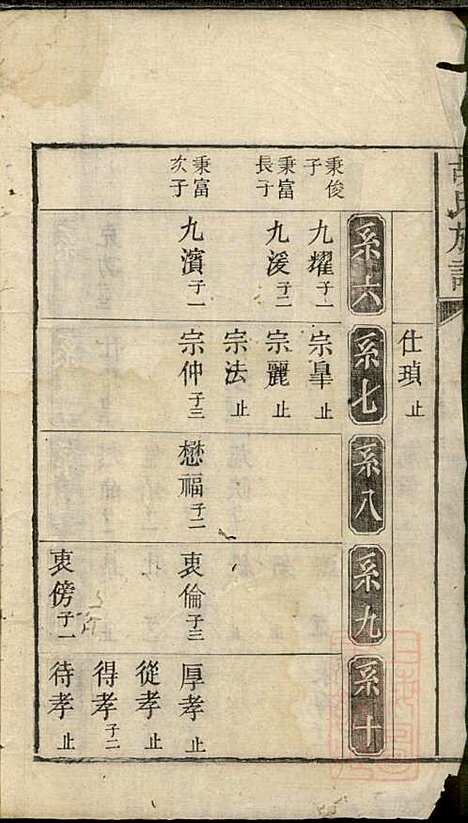 胡氏族譜
仕瑣止
系六
系七
系八
系九
系十
秉俊子
九耀子一
宗辠止
秉富長子
九湲子二
宗麗止
宗法止
秉富次子
九濱子一
宗仲子三
懋福子二
衷倫子三
厚孝止
從孝止
得孝子二
衷傍子一
待孝止